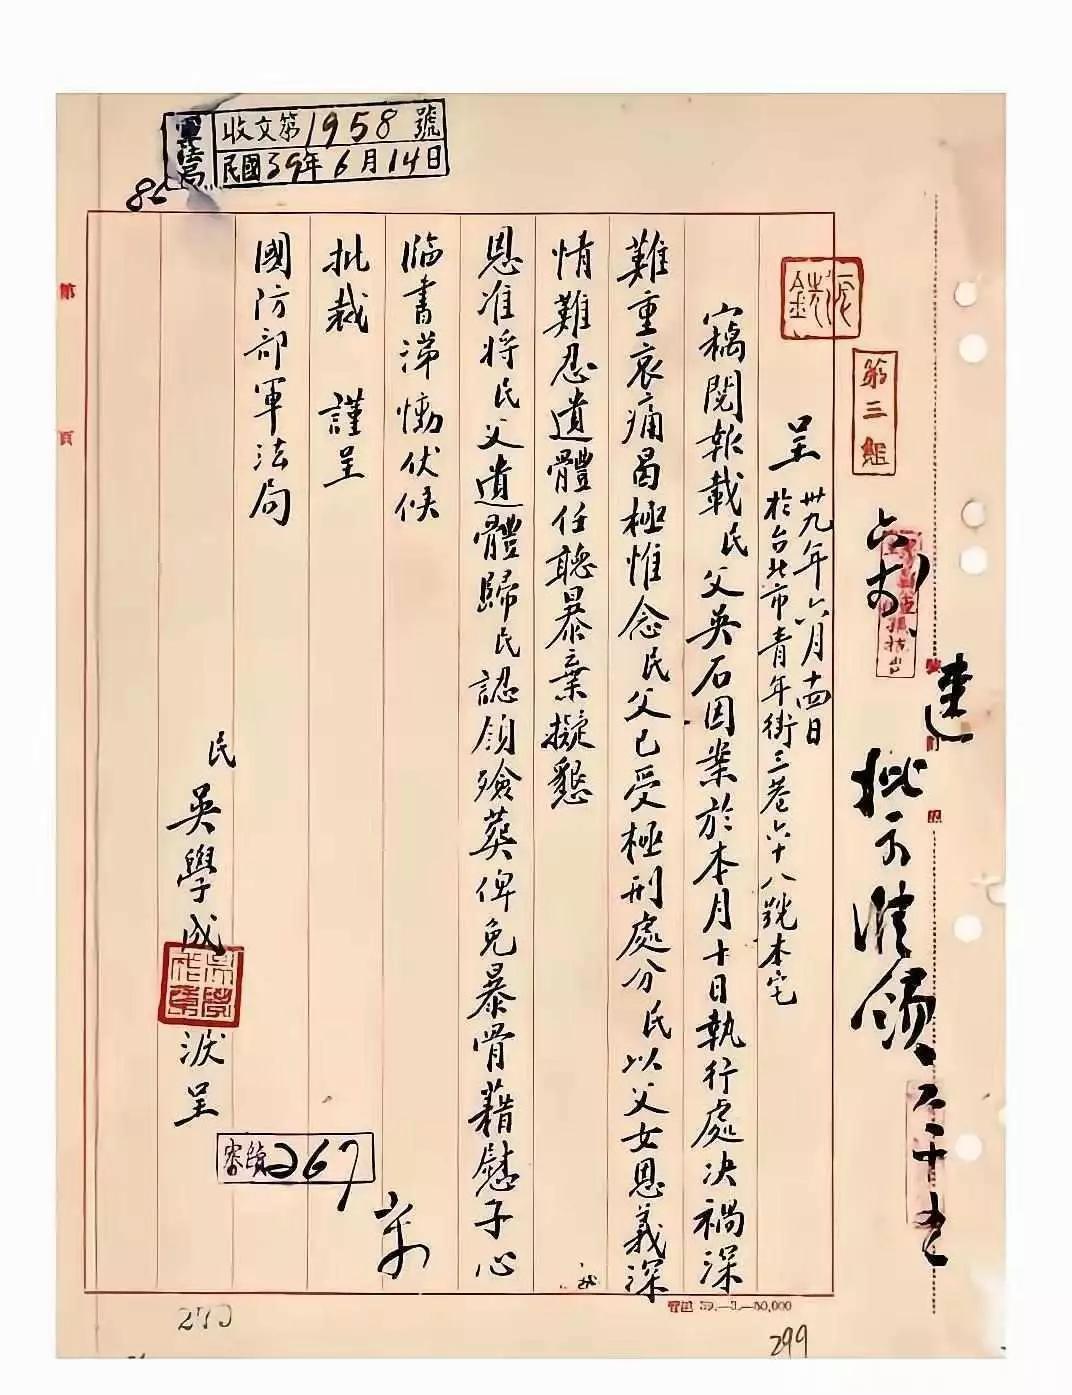 軍法局
收文第1958號
民國39年6月14日
第三組
呈 卅九年六月十四日
於台北市青年街三巷六十八號本宅
竊閱報載民父吳石因案於本月十日執行處決禍深
難重哀痛曷極惟念民父已受極刑處分民以父女恩義深
情難忍遺體任聽暴棄擬懇
恩准將民父遺體歸民認領殮葬俾免暴骨藉慰子心
臨書涕慟伏候
批裁 謹呈
國防部軍法局
民 吳學成 淚呈
267
批示准領
第
頁
39.—3.—50,000
270
299